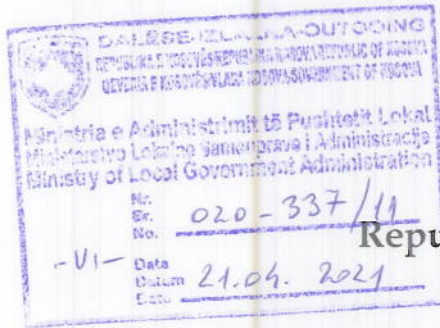 DALËSE-IZLAZNA-OUTGOING
REPUBLIKA E KOSOVËS-REPUBLIKA KOSOVA-REPUBLIC OF KOSOVA
QEVERIA E KOSOVËS-VLADA KOSOVA-GOVERNMENT OF KOSOVA
Ministria e Administrimit të Pushtetit Lokal
Ministarstvo Lokalne Samouprave i Administracije
Ministry of Local Government Administration
Nr.
Br.
No. 020-337/11
Repu
-VI-
Data
Datum 21.04. 2021
Date